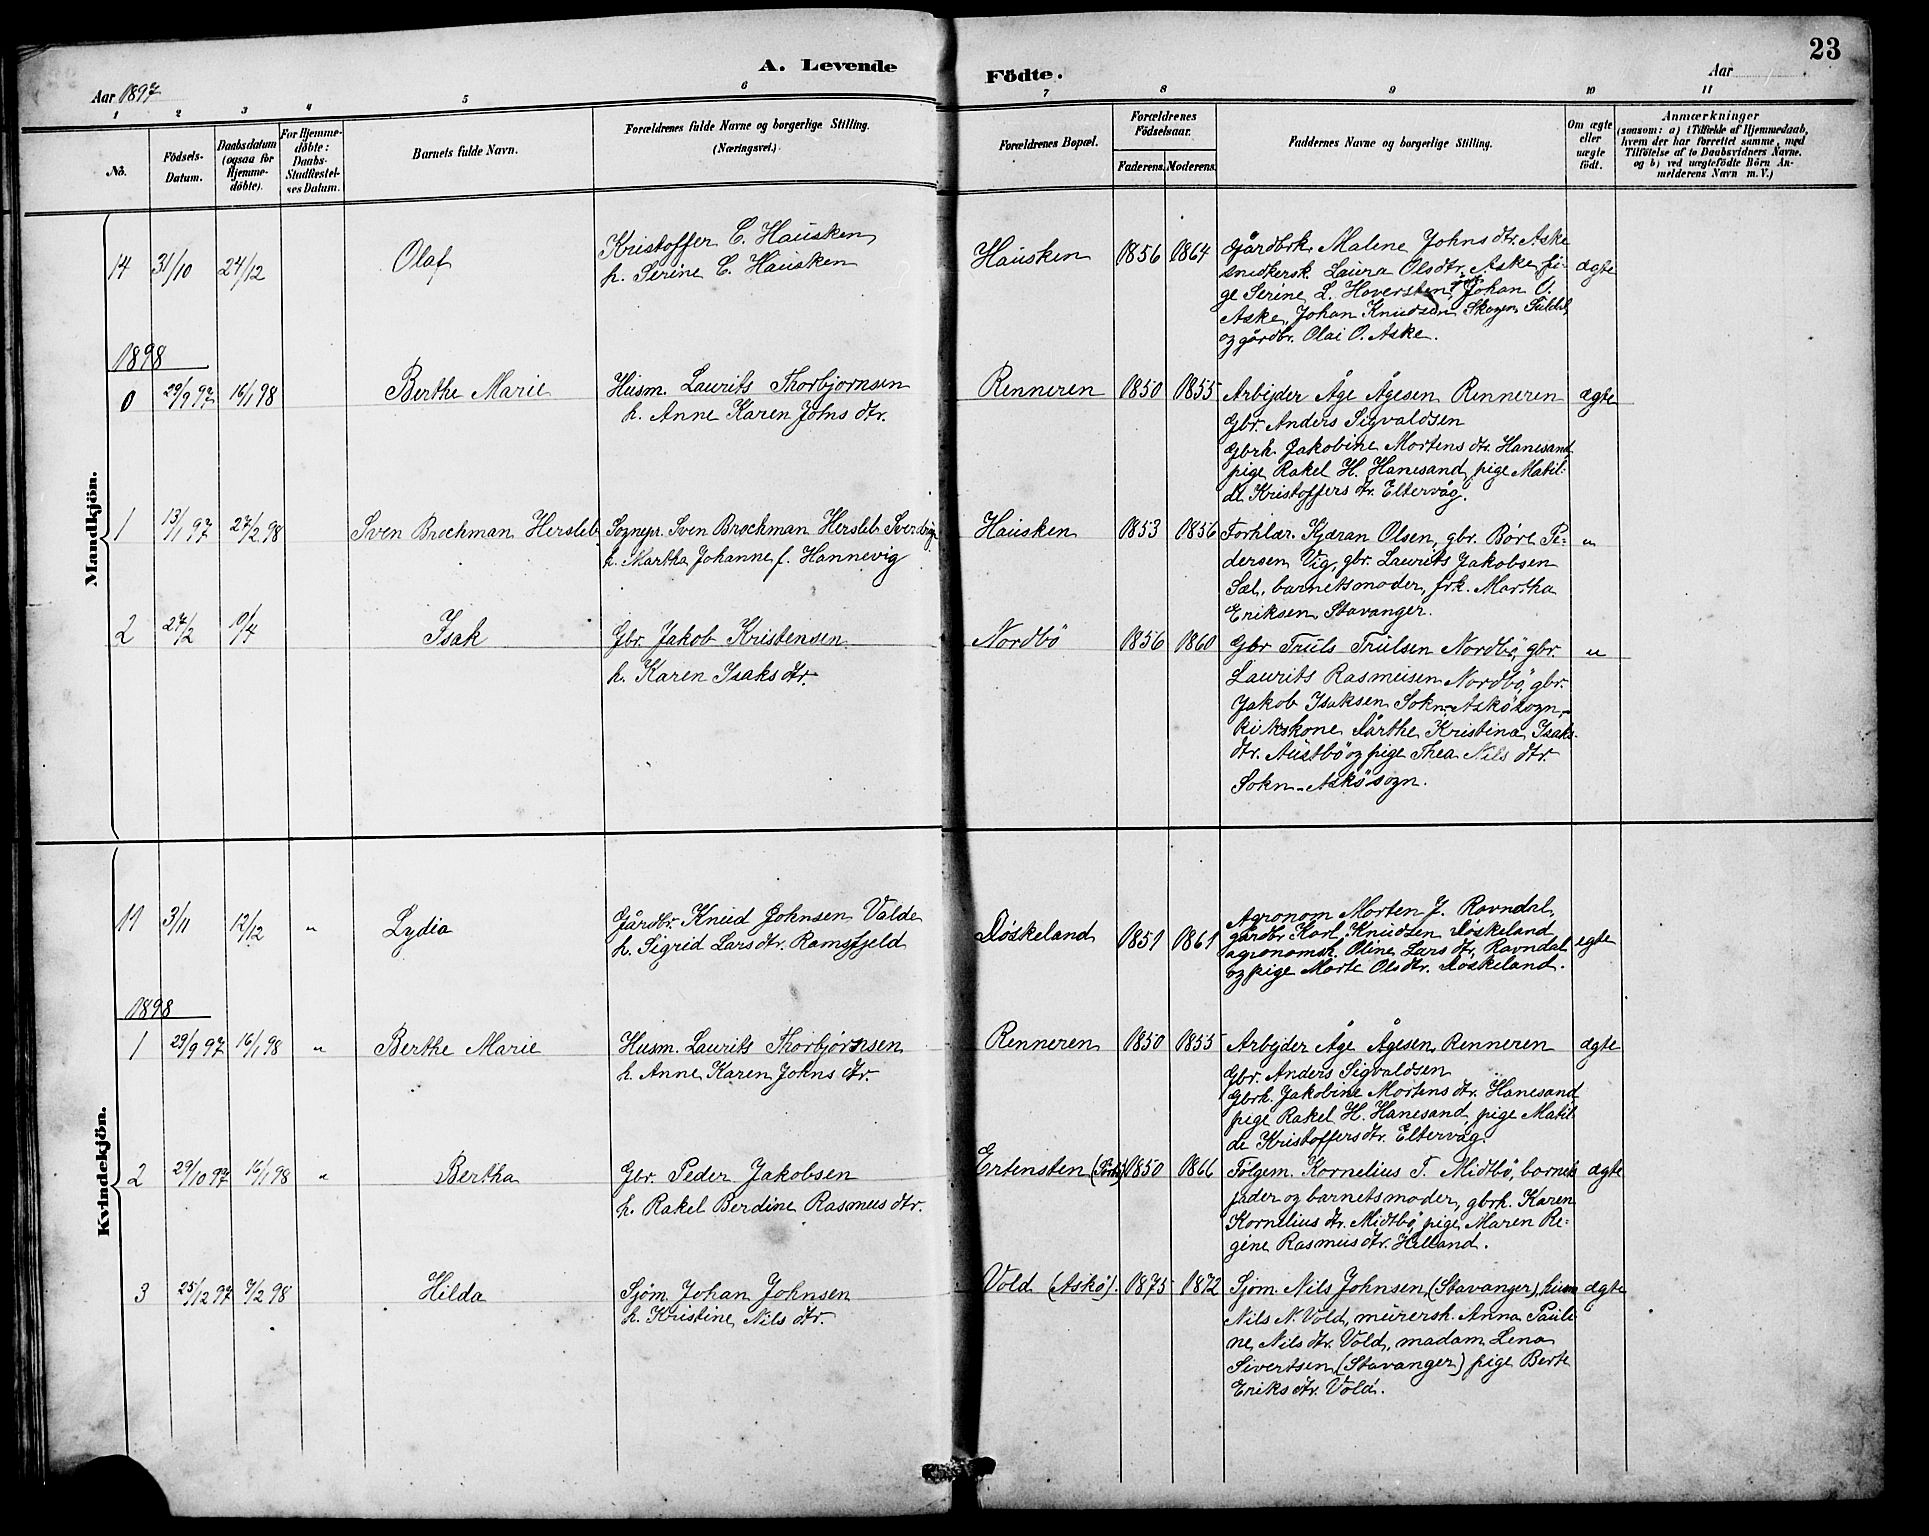 Aar 1897
A. Levende
Födte.
Aar
23
1 2 3 4 5 6 7 8 9 10 11
No.
Födsels-
Datum.
Daabsdatum
(ogsaa for
Hjemme-
döbte).
For Hjemme-
döbte:
Daabs-
Stadfæstel-
ses Datum.
Barnets fulde Navn.
Forældrenes fulde Navne og borgerlige Stilling.
(Næringsvei.)
Forældrenes Bopæl.
Forældrenes
Födselsaar.
Faderens. Moderens.
Faddernes Navne og borgerlige Stilling.
Om ægte
eller
uægte
födt.
Anmærkninger
(saasom: a) i Tilfælde af Hjemmedaab,
hvem der har forrettet samme, med
Tilföielse af to Daabsvidners Navne,
og b) ved uægtefödte Börn An-
melderens Navn m. V.)
Mandkjön.
14 31/10 24/12 Olaf
Kristoffer C. Hausken
h. Serine C. Hausken
Hausken 1856 1864
Gårdbrk. Malene Johnsdtr. Aske
snedkersk. Laura Olsdtr. Aske, pi-
ge Serine L. Hoversten, Johan O.
Aske, Johan Knudsen Skogen Suldal,
og gårdbr. Olai O. Aske.
ægte
1898
0 29/9 97 16/1 98 Berthe Marie
Husm. Laurits Thorbjornsen
h. Anne Karen Johns dtr.
Renneren 1850 1855
Arbejder Åge Ågesen Renneren
Gbr. Anders Sigvaldsen
Gbrk. Jakobine Mortens dtr. Hanesand
pige Rakel H. Hanesand, pige Matil-
de Kristoffers dtr. Eltervåg.
ægte
1 13/1 97 27/2 98 Sven Brochman Hersleb
Sognepr. Sven Brochman Hersleb Sverdrup
h. Martha Johanne f. Hannevig
Hausken 1853 1856
Forhlær. Kjæran Olsen, gbr. Børe Pe-
dersen Vig, gbr. Laurits Jakobsen
Sal, barnets moder, frk. Martha
Eriksen Stavanger.
"
2 27/2 10/4 Isak
Gbr. Jakob Kristensen
h. Karen Isaks dtr.
Nordbö 1856 1860
Gbr Truls Trulsen Nordbö, gbr.
Laurits Rasmusen Nordbö, gbr.
Jakob Isaksen Sokn-Askösogn,
kirkskone Dårthe Kristina Isaks-
dtr. Austbö og pige Thea Nils dtr.
Sokn-Askösogn.
"
Kvindekjön.
11 3/11 12/12 " Lydia
Gårdbr. Knud Johnsen Valde
h. Sigrid Lars dtr. Ramsfjeld
Døskeland 1851 1861
Agronom Morten J. Ravndal,
gårdbr Karl Knudsen Døskeland
agronomsk. Oline Lars dtr. Ravndal
og pige Marte Olsdtr. Døskeland.
egte
1898
1 29/9 97 16/1 98 " Berthe Marie
Husm. Laurits Thorbjørnsen
h. Anne Karen Johns dtr.
Renneren 1850 1855
Arbejder Åge Ågesen Renneren
Gbr. Anders Sigvaldsen
Gbrk. Jakobine Mortens dtr. Hanesand
pige Rakel H. Hanesand, pige Matil-
de Kristoffersdtr. Eltervåg.
ægte
2 29/10 97 16/1 98 " Bertha
Gbr. Peder Jakobsen
h. Rakel Berdine Rasmus dtr.
Ertensten 1850 1866
Følgem. Kornelius T. Midtbö, barnets
fader og barnets moder, gbrk. Karen
Kornelius dtr. Midtbö, pige Maren Re-
gine Rasmus dtr. Helland.
ægte
3 25/12 97 7/2 98 Hilda
Sjöm Johan Johnsen
h. Kristine Nils dtr.
Vold (Askö). 1875 1872
Sjom. Nils Johnsen (Stavanger), husm
Nils N. Vold, murersk. Anna Pauli-
ne Nils dtr. Vold, madam Lena
Sivertsen (Stavanger) pige Berte
Eriks dtr. Vold.
ægte